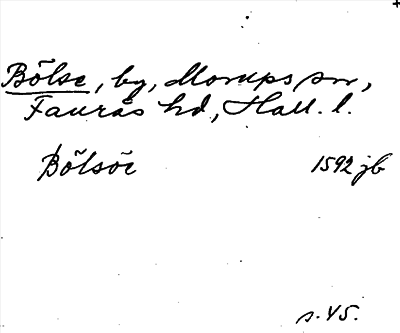 Bölse, by, Morups sn,
Faurås hd, Hall. l.
Bölsöe 1592 jb
s. 45.